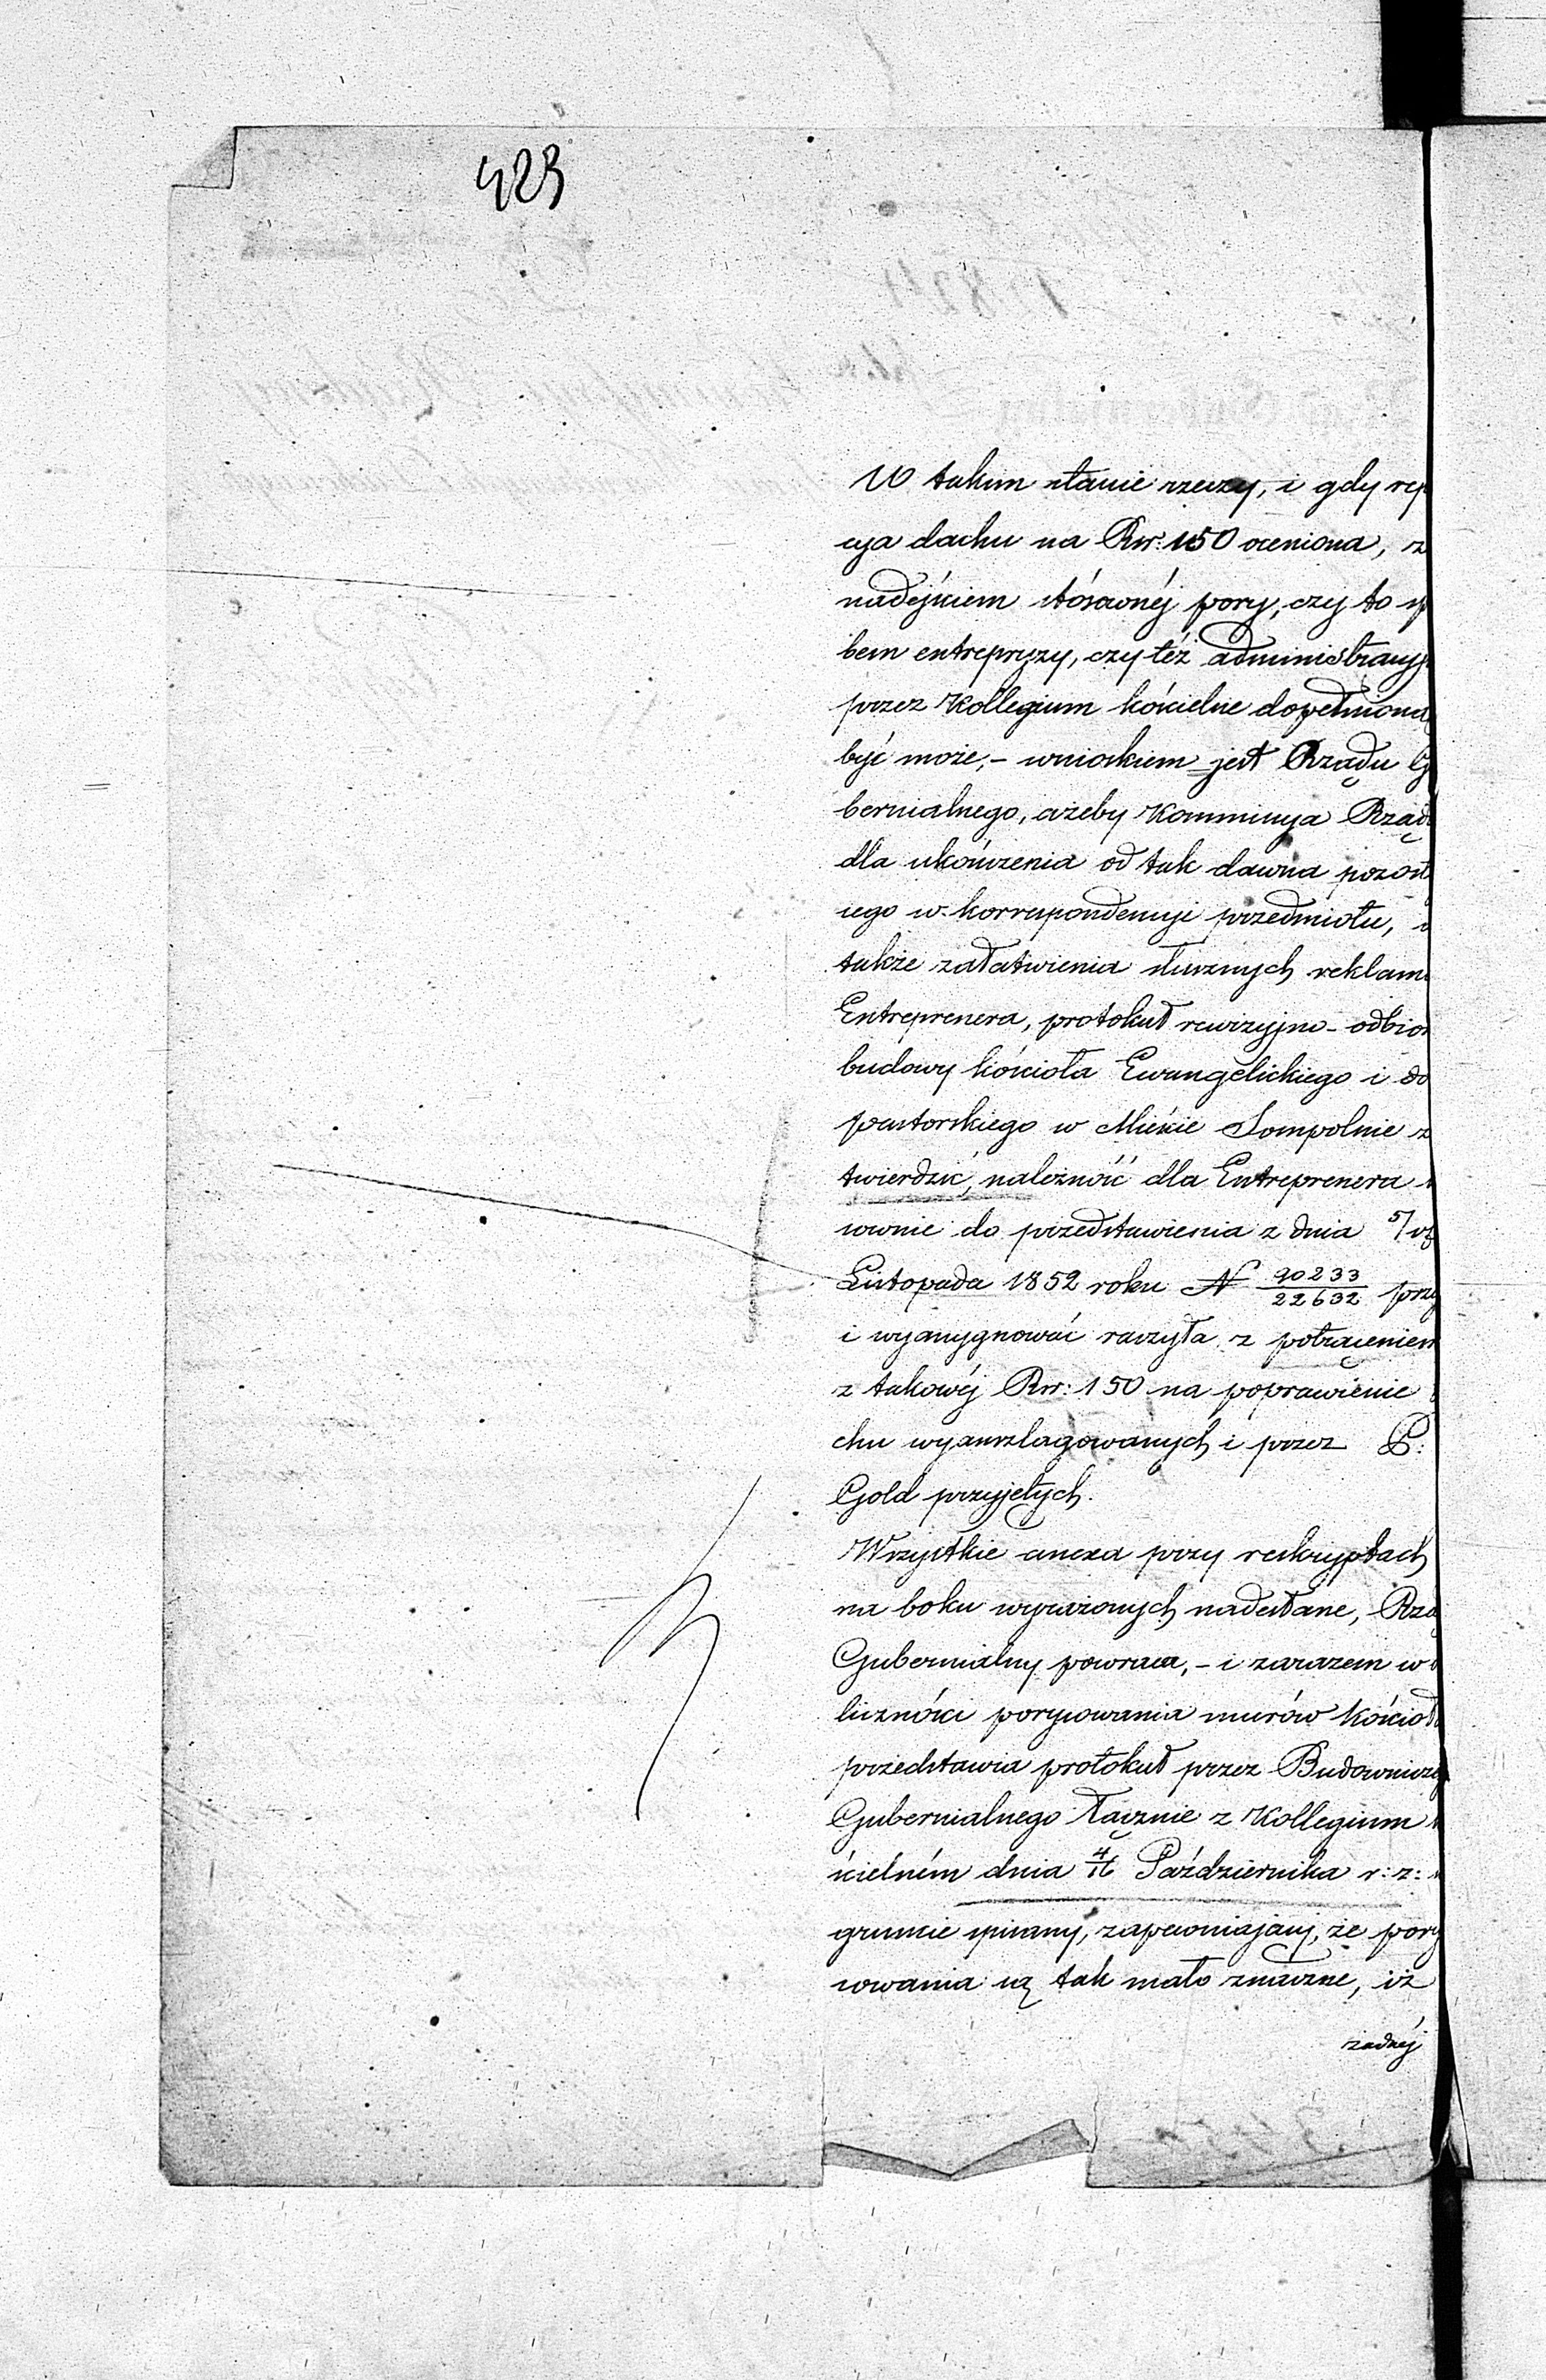 423
W takim stanie rzeczy, i gdy rep
cya dachu na Rsr: 150 oceniona, z
nadejściem stósownéj pory, czy to sp
bem entrepryzy, czy téż administracyj
przez Kollegium kościelne dopełnioną
być może,- wnioskiem jest Rządu G
bernialnego, ażeby Kommissya Rząd
dla ukończenia od tak dawna pozost
cego w korrespondencyi przedmiotu, i
także załatwienia słusznych reklam
Entreprenera, protokuł rewizyjno-odbior
budowy kościoła Ewangelickiego i do
pastorskiego w Mieście Sompolnie z
twierdzić, należność dla Entreprenera
sownie do przedstawienia z dnia 5/
Listopada 1852 roku N 90233/22632 przy
i wyassygnować raczyła z potrąceniem
z takowéj Rsr: 150 na poprawienie
chu wyanszlagowanych i przez P:
Gold przyjętych.
Wszystkie anexa przy reskryptach
na boku wyrażonych nadesłane, Rzą
Gubernialny powraca,- i zarazem w
liczności porysowania murów kościoł
przedstawia protokuł przez Budownicze
Gubernialnego łącznie z Kollegium
ścielném dnia 4/16 Października r: z:
gruncie spisany, zapewniający, że pory
sowania są tak mało znaczne, iż
żadnéj